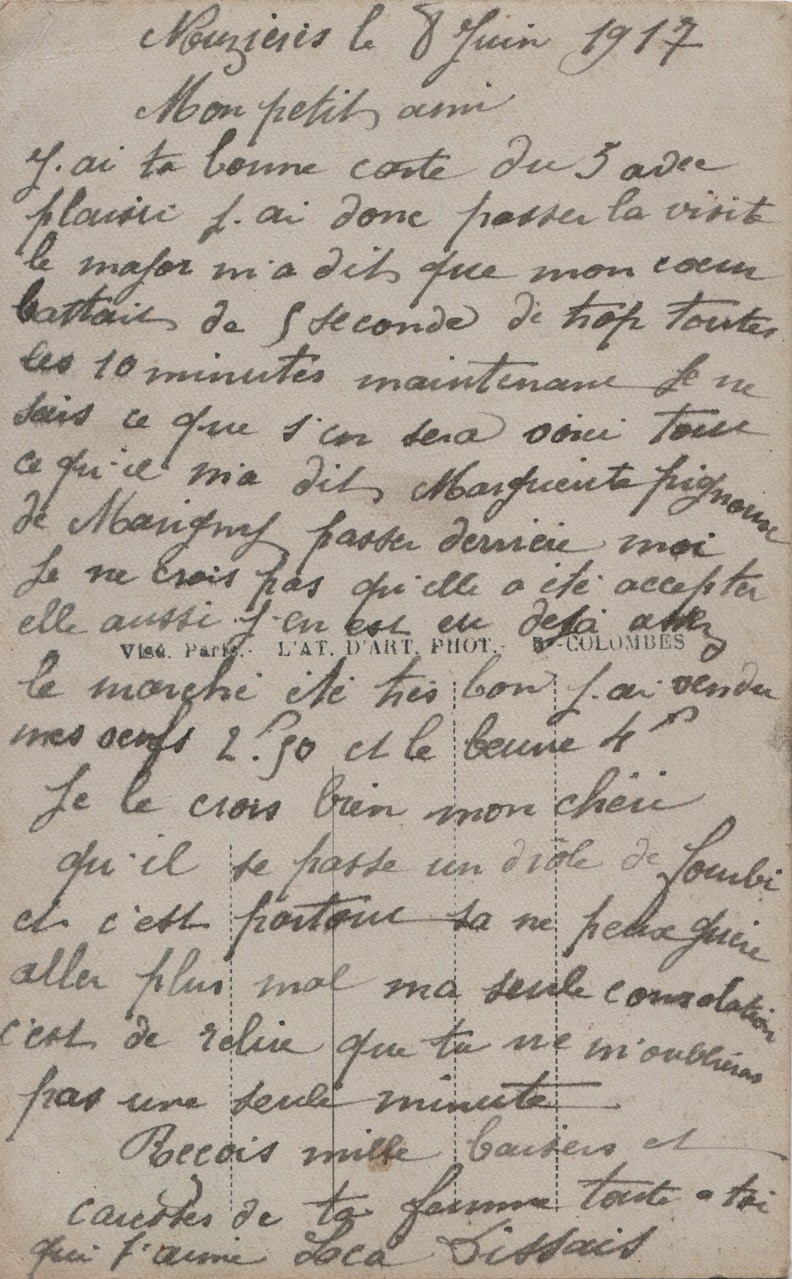 le 8 Juin 1917
Mon petit ami
J.ai ta bonne carte du 5 avec
plaisir J.ai donc passer la visite
le major m'a dit que mon coeur
battait de 5 seconde de trop toutes
les 10 minutes maintenant Je ne
sais ce que s'en sera voici tout
ce qu'il m'a dit Marguerite
de Marigny passer derriere moi
Je ne crois pas qu'elle a été accepter
elle aussi J'en est eu deja assez
Visé. Paris.- L'AT. D'ART. PHOT.- -COLOMBES
le marché été très bon J.ai vendu
mes oeufs 2f.50 et le beurre 4f
Je le crois bien mon chéri
qu'il se passe un drôle de fourbi
et c'est partout sa ne peux guère
aller plus mal ma seule consolation
c'est de relire que tu ne m'oublieras
pas une seule minute
Reçois mille baisers et
caresses de ta femme toute a toi
qui t'aime Dissais